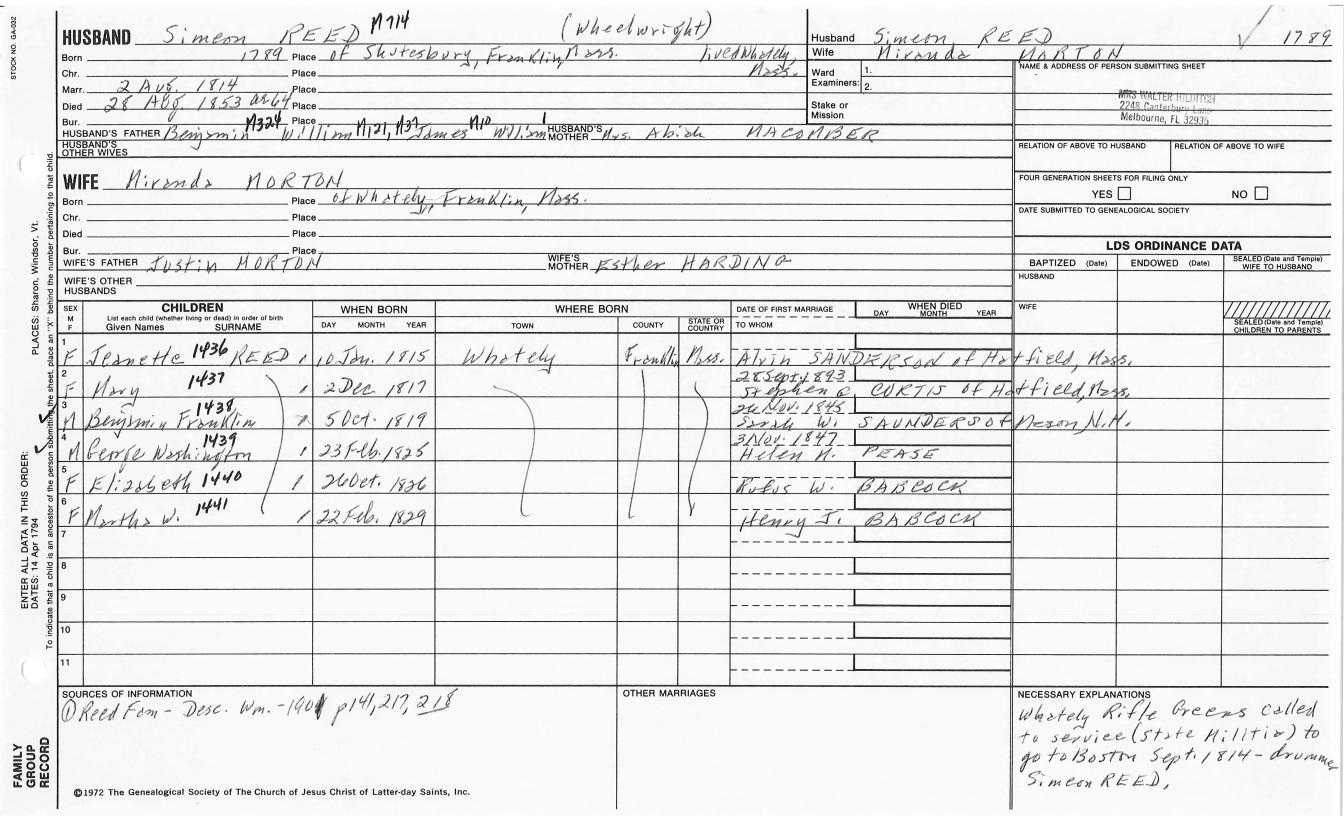 STOCK NO. GA-032
HUSBAND Simeon REED M714 (Wheelwright)
Born 1789 Place of Shutesbury, Franklin, Mass. lived Whately, Mass.
Chr. Place
Marr. 2 Aug. 1814 Place
Died 28 Aug. 1853 ae 64 Place
Bur. Place
HUSBAND'S FATHER Benjamin M324 William M121, M37 James M10 William 1 HUSBAND'S MOTHER Mrs. Abiah MACOMBER
HUSBAND'S OTHER WIVES
WIFE Miranda MORTON
Born Place of Whately, Franklin, Mass.
Chr. Place
Died Place
Bur. Place
WIFE'S FATHER Justin MORTON WIFE'S MOTHER Esther HARDING
WIFE'S OTHER HUSBANDS
Husband Simeon REED 1789
Wife Miranda MORTON
Ward Examiners: 1. 2.
Stake or Mission
NAME & ADDRESS OF PERSON SUBMITTING SHEET
MRS WALTER
2248 Canterbury Lane
Melbourne, FL 32935
RELATION OF ABOVE TO HUSBAND RELATION OF ABOVE TO WIFE
FOUR GENERATION SHEETS FOR FILING ONLY
YES NO
DATE SUBMITTED TO GENEALOGICAL SOCIETY
LDS ORDINANCE DATA
BAPTIZED (Date) ENDOWED (Date) SEALED (Date and Temple) WIFE TO HUSBAND
HUSBAND
WIFE
SEALED (Date and Temple) CHILDREN TO PARENTS
SEX M F CHILDREN WHEN BORN WHERE BORN DATE OF FIRST MARRIAGE WHEN DIED
List each child (whether living or dead) in order of birth
Given Names SURNAME DAY MONTH YEAR TOWN COUNTY STATE OR COUNTRY TO WHOM DAY MONTH YEAR
1 F Jeanette 1436 REED 10 Jan. 1815 Whately Franklin Mass. Alvin SANDERSON of Hatfield, Mass.
28 Sept. 1893
2 F Mary 1437 2 Dec 1817 Stephen G. CURTIS of Hatfield, Mass.
26 Nov. 1845
3 M Benjamin Franklin 1438 5 Oct. 1819 Sarah W. SAUNDERS of Mason N.H.
3 Nov. 1847
4 M George Washington 1439 23 Feb. 1825 Helen M. PEASE
5 F Elizabeth 1440 26 Oct. 1826 Rufus W. BABCOCK
6 F Martha W. 1441 22 Feb. 1829 Henry J. BABCOCK
7
8
9
10
11
SOURCES OF INFORMATION
① Reed Fam - Desc. Wm. - 1901 p141, 217, 218
OTHER MARRIAGES
NECESSARY EXPLANATIONS
Whately Rifle Greens called
to service (State Militia) to
go to Boston Sept. 1814 - drummer
Simeon REED.
©1972 The Genealogical Society of The Church of Jesus Christ of Latter-day Saints, Inc.
FAMILY GROUP RECORD
ENTER ALL DATA IN THIS ORDER:
DATES: 14 Apr 1794
PLACES: Sharon, Windsor, Vt.
To indicate that a child is an ancestor of the person submitting the sheet, place an "X" behind the number pertaining to that child.